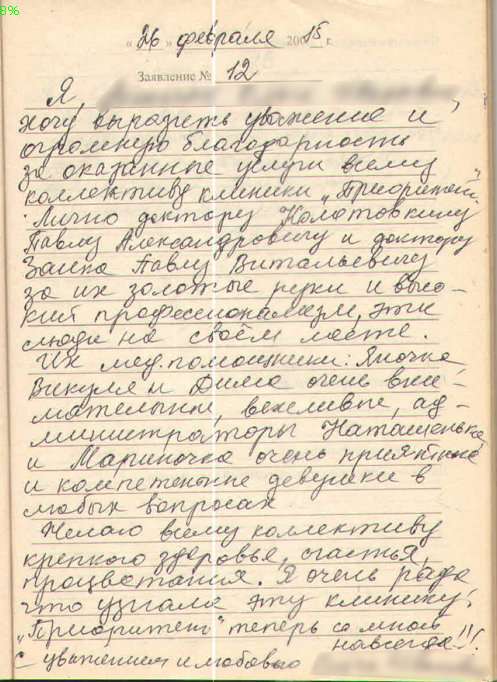 896
"26" февраля 200 15 г.
Заявление № 12
Я,
хочу выразить уважение и
огромную благодарность
за оказанные услуги всему
коллективу клиники „Приоритет"
Лично доктору Колотовкину
Павлу Александровичу и доктору
Заика Павлу Витальевичу
за их золотые руки и высо-
кий профессионализм, эти
люди на своём месте.
Их мед.помощники: Яночка
Викуля и Дима очень вни-
мательны, вежливые, ад-
министраторы Наташенька
и Мариночка очень приятные
и компетентные девушки в
любых вопросах
Желаю всему коллективу
крепкого здоровья, счастья,
процветания. Я очень рада
что узнала эту клинику,
„Приоритет" теперь со мной
навсегда!!!
С уважением и любовью